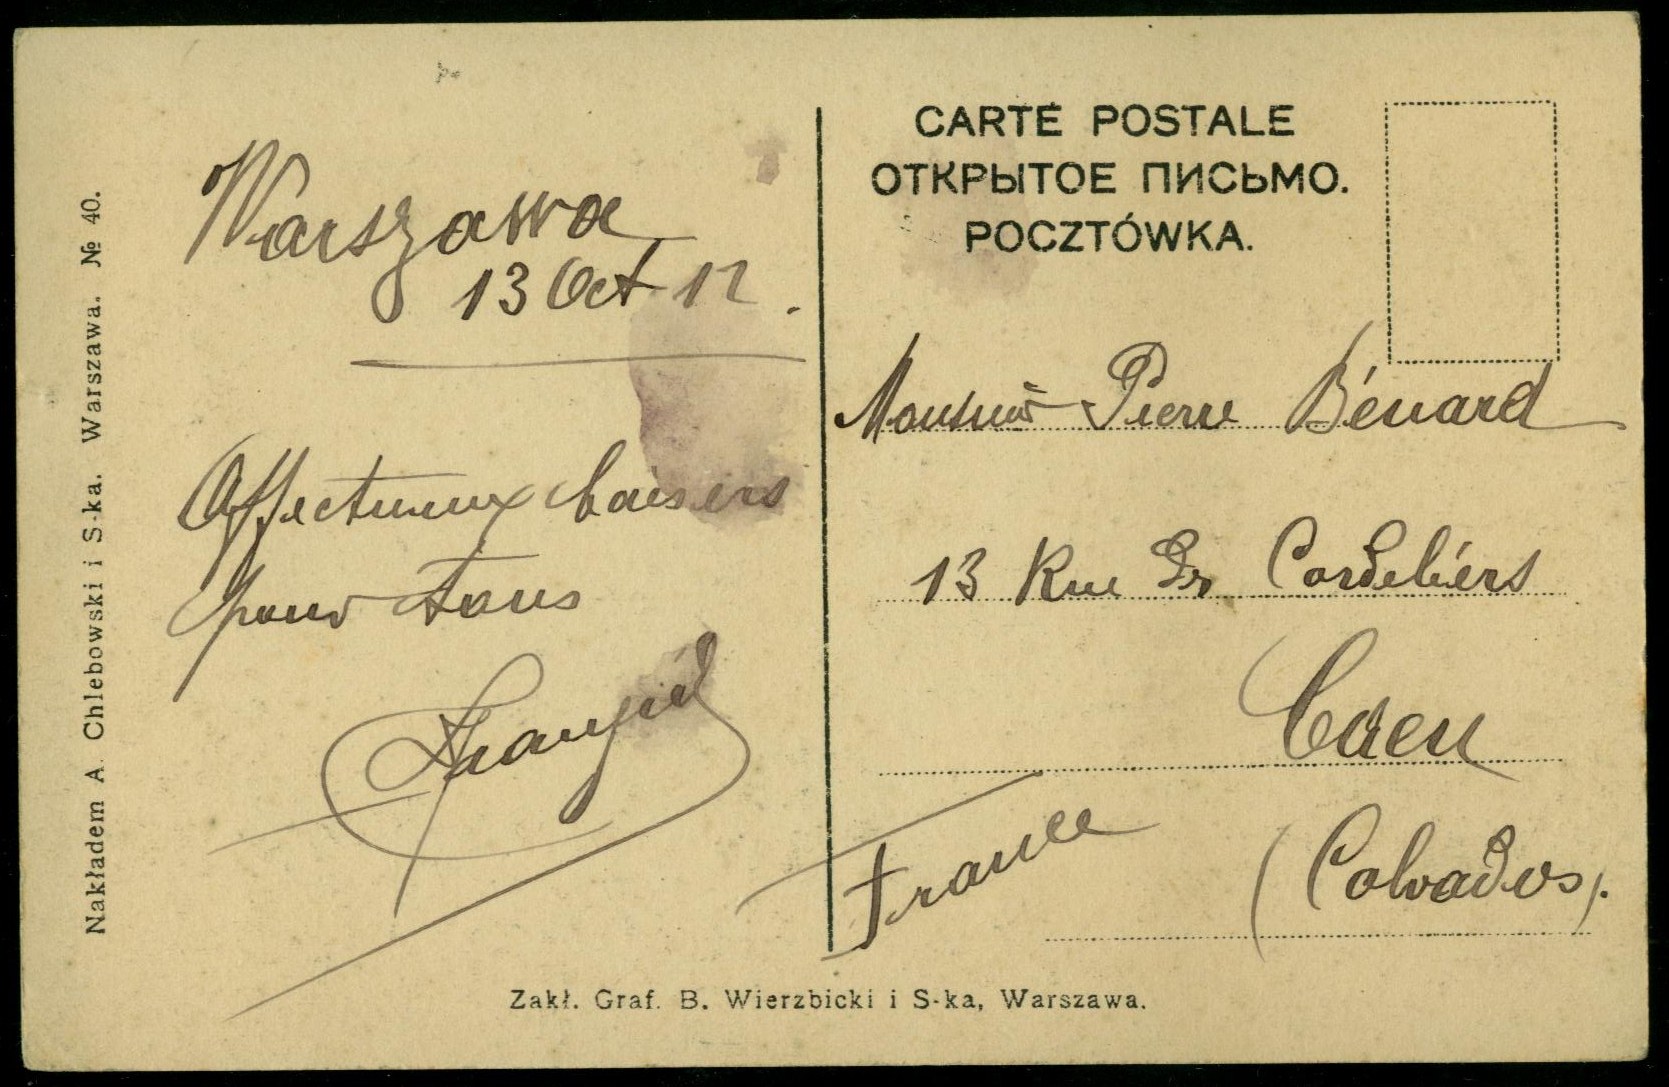 CARTE POSTALE
ОТКРЫТОЕ ПИСЬМО.
POCZTÓWKA.
Warszawa
13 Oct 12.
Affectueux baisers
pour tous
Monsieur Pierre Bénard
13 Rue des Cordeliers
Caen
(Calvados).
France
Nakładem A. Chlebowski i S-ka. Warszawa. № 40.
Zakł. Graf. B. Wierzbicki i S-ka, Warszawa.